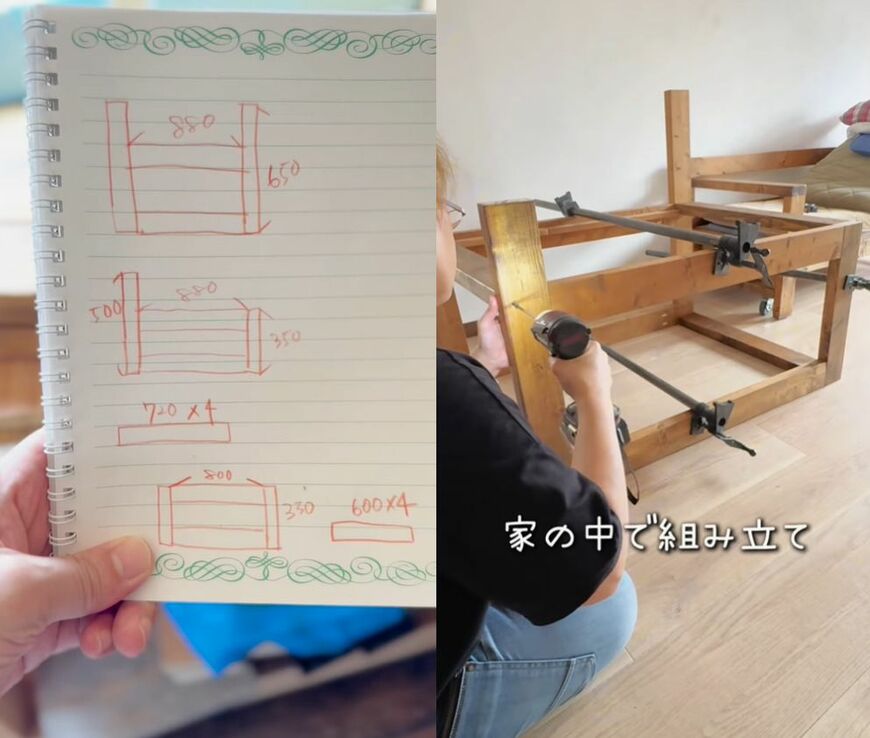 880
650
880
500
350
720×4
800
330
600×4
家の中で組み立て